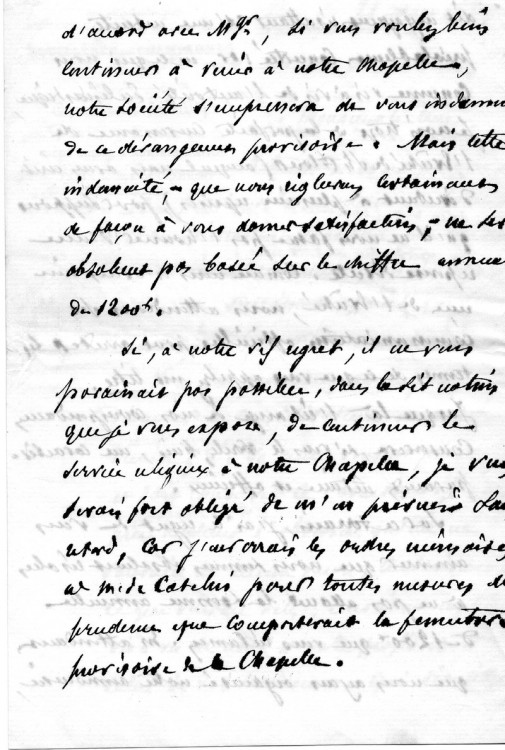 d'accord avec Mgr, si vous voulez bien
continuer à venir à notre Chapelle,
notre Société s'empressera de vous indemn
de ce dérangement provisoire. Mais cette
indemnité, - que nous règlerons certainement
de façon à vous donner satisfaction, - ne ser
absolument pas basée sur le chiffre annue
de 1200f.
Si, à notre vif regret, il ne vous
paraissait pas possible, dans les dit
que je vous expose, de continuer le
service religieux à notre Chapelle, je vous
serais fort obligé de m'en prévenir san
retard, car j'enverrais les ordres nécessaires
à M. de Catelin pour toutes mesures de
prudence que comporterait la fermeture
provisoire de la Chapelle.